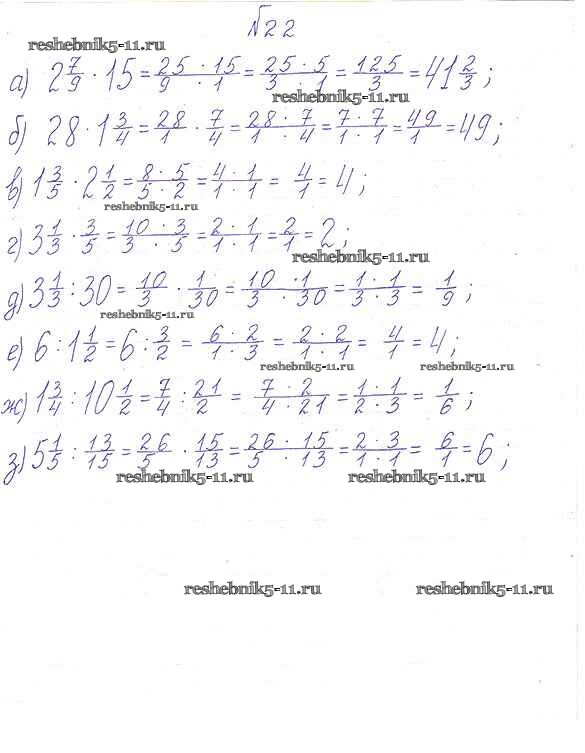 №22
reshebnik5-11.ru
а) 2 7/9 · 15 = 25 · 15 / 9 · 1 = 25 · 5 / 3 · 1 = 125/3 = 41 2/3 ;
reshebnik5-11.ru
б) 28 · 1 3/4 = 28/1 · 7/4 = 28 · 7 / 1 · 4 = 7 · 7 / 1 · 1 = 49/1 = 49 ;
в) 1 3/5 · 2 1/2 = 8 · 5 / 5 · 2 = 4 · 1 / 1 · 1 = 4/1 = 4 ;
reshebnik5-11.ru
г) 3 1/3 · 3/5 = 10 · 3 / 3 · 5 = 2 · 1 / 1 · 1 = 2/1 = 2 ;
reshebnik5-11.ru
д) 3 1/3 : 30 = 10/3 · 1/30 = 10 · 1 / 3 · 30 = 1 · 1 / 3 · 3 = 1/9 ;
reshebnik5-11.ru
е) 6 : 1 1/2 = 6 : 3/2 = 6 · 2 / 1 · 3 = 2 · 2 / 1 · 1 = 4/1 = 4 ;
reshebnik5-11.ru reshebnik5-11.ru
ж) 1 3/4 : 10 1/2 = 7/4 : 21/2 = 7 · 2 / 4 · 21 = 1 · 1 / 2 · 3 = 1/6 ;
з) 5 1/5 : 13/15 = 26/5 · 15/13 = 26 · 15 / 5 · 13 = 2 · 3 / 1 · 1 = 6/1 = 6 ;
reshebnik5-11.ru reshebnik5-11.ru
reshebnik5-11.ru reshebnik5-11.ru